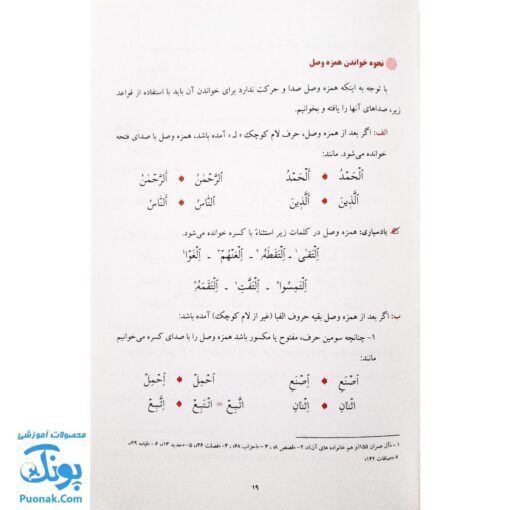 نحوه خواندن همزه وصل
با توجه به اینکه همزه وصل صدا و حرکت ندارد برای خواندن آن باید با استفاده از قواعد
زیر، صداهای آنها را یافته و بخوانیم.
الف: اگر بعد از همزه وصل، حرف لام کوچک « لـ » آمده باشد، همزه وصل با صدای فتحه
خوانده می‌شود. مانند:
ٱلْحَمْدُ ♦ أَلْحَمْدُ ٱلرَّحْمٰنُ ♦ أَلرَّحْمٰنُ
ٱلَّذِينَ ♦ أَلَّذِينَ ٱلنَّاسُ ♦ أَلنَّاسُ
یادسپاری: همزه وصل در کلمات زیر استثناءً با کسره خوانده می‌شود.
اِلْتَقَی۱ ـ اِلْتَقَطَهُ۲ ـ اِلْعَنْهُمْ۳ ـ اِلْغَوْا۴
اِلْتَمِسُوا۵ ـ اِلْتَفَّتِ۶ ـ اِلْتَقَمَهُ۷
ب: اگر بعد از همزه وصل بقیه حروف الفبا (غیر از لام کوچک) آمده باشد:
۱- چنانچه سومین حرف، مفتوح یا مکسور باشد همزه وصل را با صدای کسره می‌خوانیم
مانند:
ٱصْنَعِ ♦ اِصْنَعِ ٱحْمِلْ ♦ اِحْمِلْ
ٱثْنَانِ ♦ اِثْنَانِ ٱتَّبِعْ = ٱتْتَبِعْ ♦ اِتَّبِعْ
۱ - «آل عمران ۱۵۵» و هم خانواده های آن ۲- «قصص ۸» ۳ - «احزاب ۶۸» ۴- «فصلت ۲۶» ۵- «حدید ۱۳» ۶ - «قیامه ۲۹»
۷- «صافات ۱۴۲»
۱۹
محصولات آموزشی
پونک
Puonak.Com